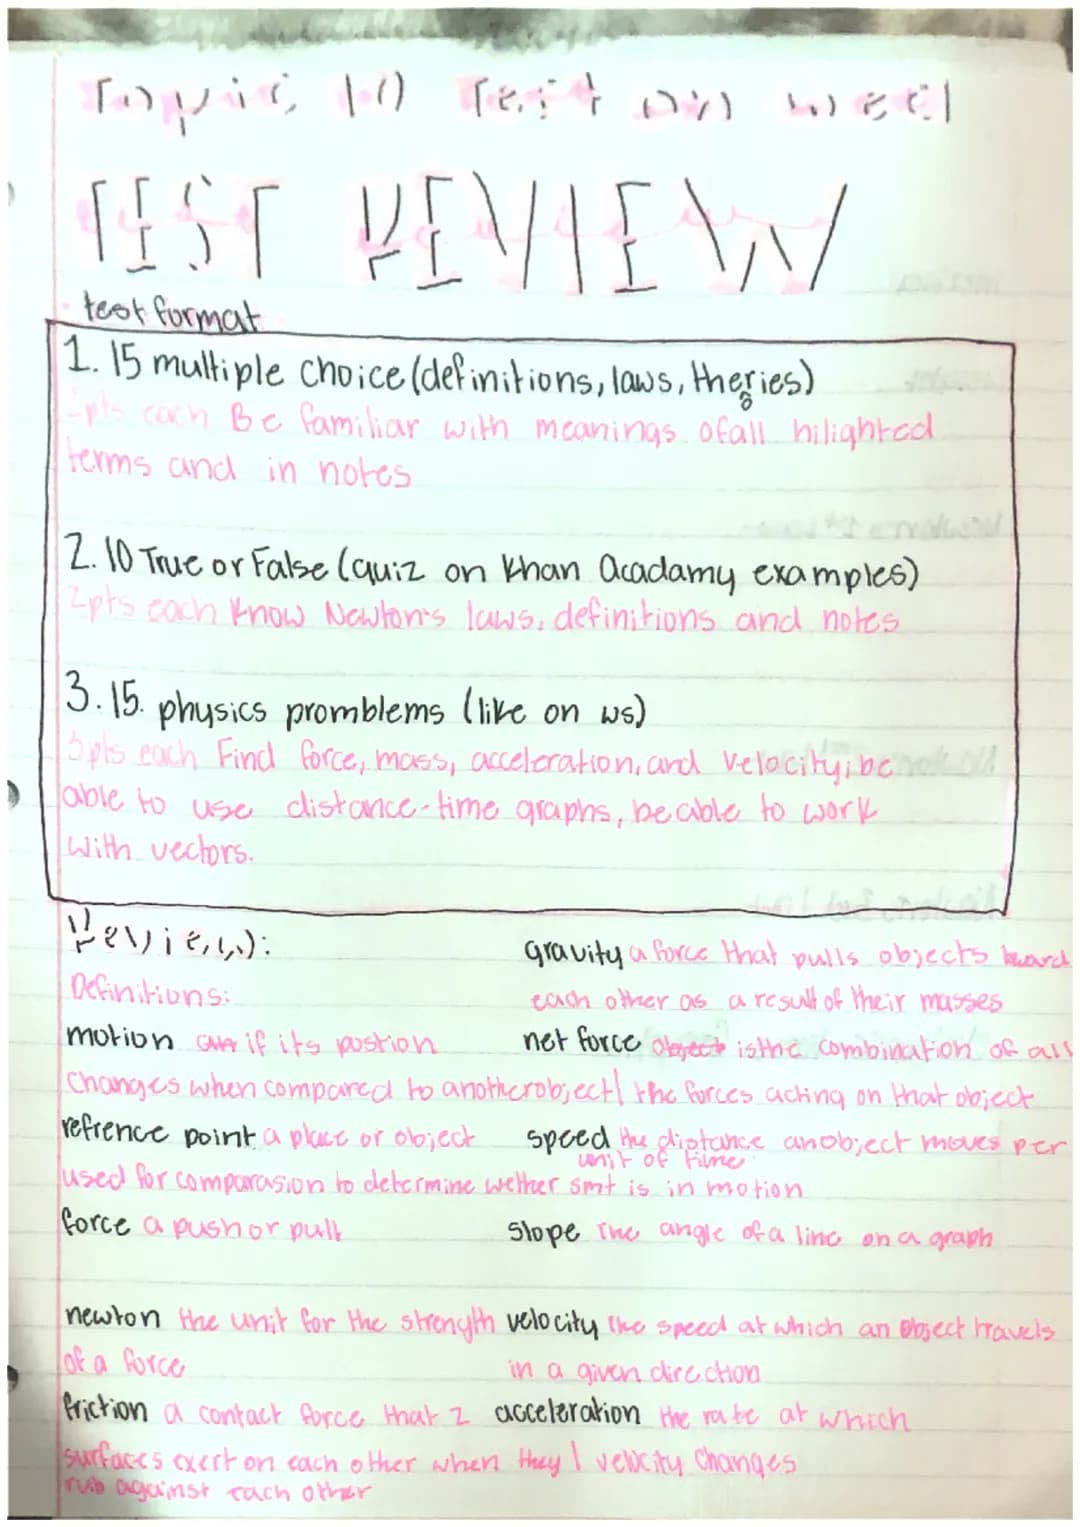 Topic 10 Test on wed
TEST REVIEW
test format
1. 15 multiple choice (definitions, laws, theries)
2pts each Be familiar with meanings of all hilighted
terms and in notes
2. 10 True or False (quiz on Khan Acadamy examples)
2pts each Know Newton's laws, definitions and notes
3. 15. physics promblems (like on ws)
5pts each Find force, mass, acceleration, and velocity; be
able to use distance-time graphs, be able to work
with vectors.
Review:
Definitions:
motion if its postion
changes when compared to another object
refrence point a place or object
used for comparasion to determine wether smt is in motion
force a push or pull
newton the unit for the strength
of a force
friction a contact force that 2
surfaces exert on each other when they
rub against each other
gravity a force that pulls objects toward
each other as a result of their masses
net force object is the combination of all
the forces acting on that object
speed the distance an object moves per
unit of time
slope the angle of a line on a graph
velocity the speed at which an object travels
in a given direction
acceleration the rate at which
velocity changes